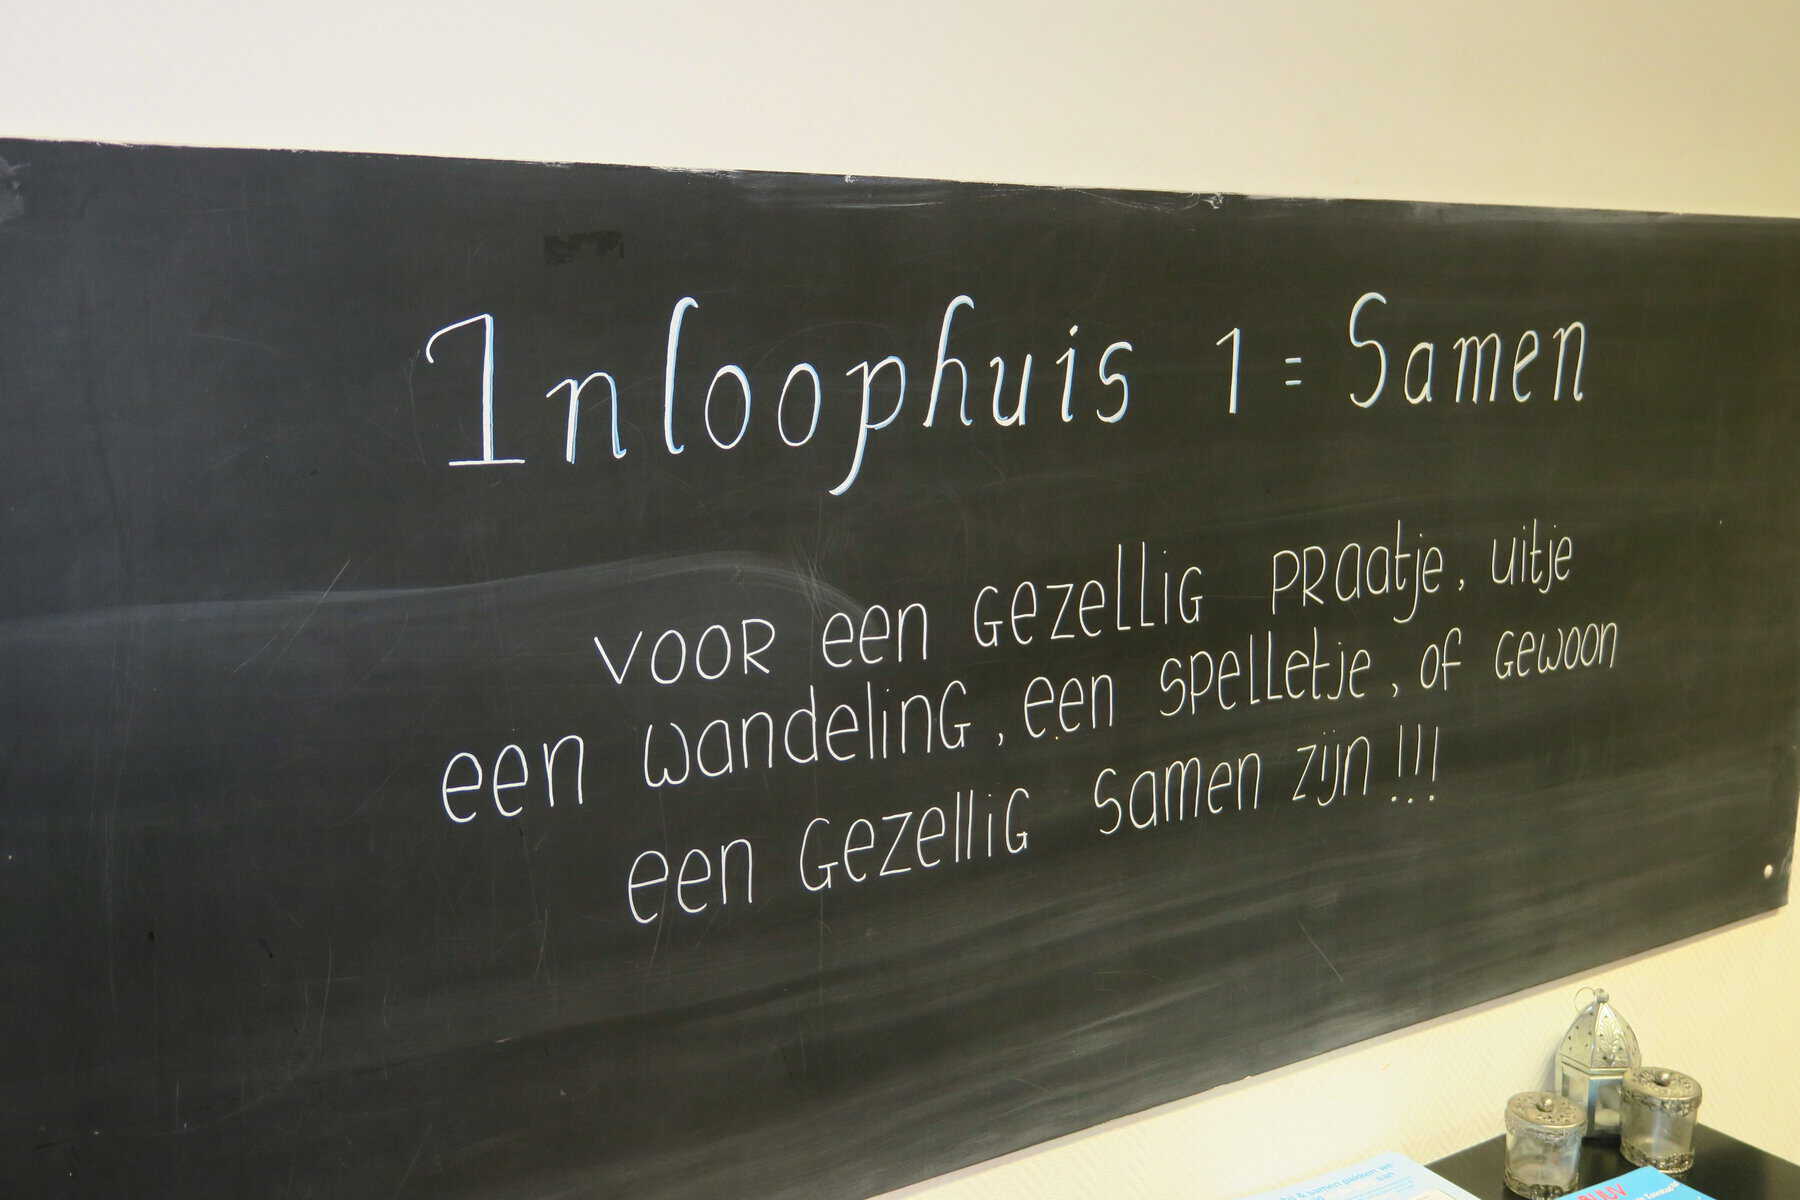 Inloophuis 1 = Samen
voor een gezellig praatje, uitje
een wandeling, een spelletje, of gewoon
een gezellig samen zijn!!!
& samen pakken we
aan